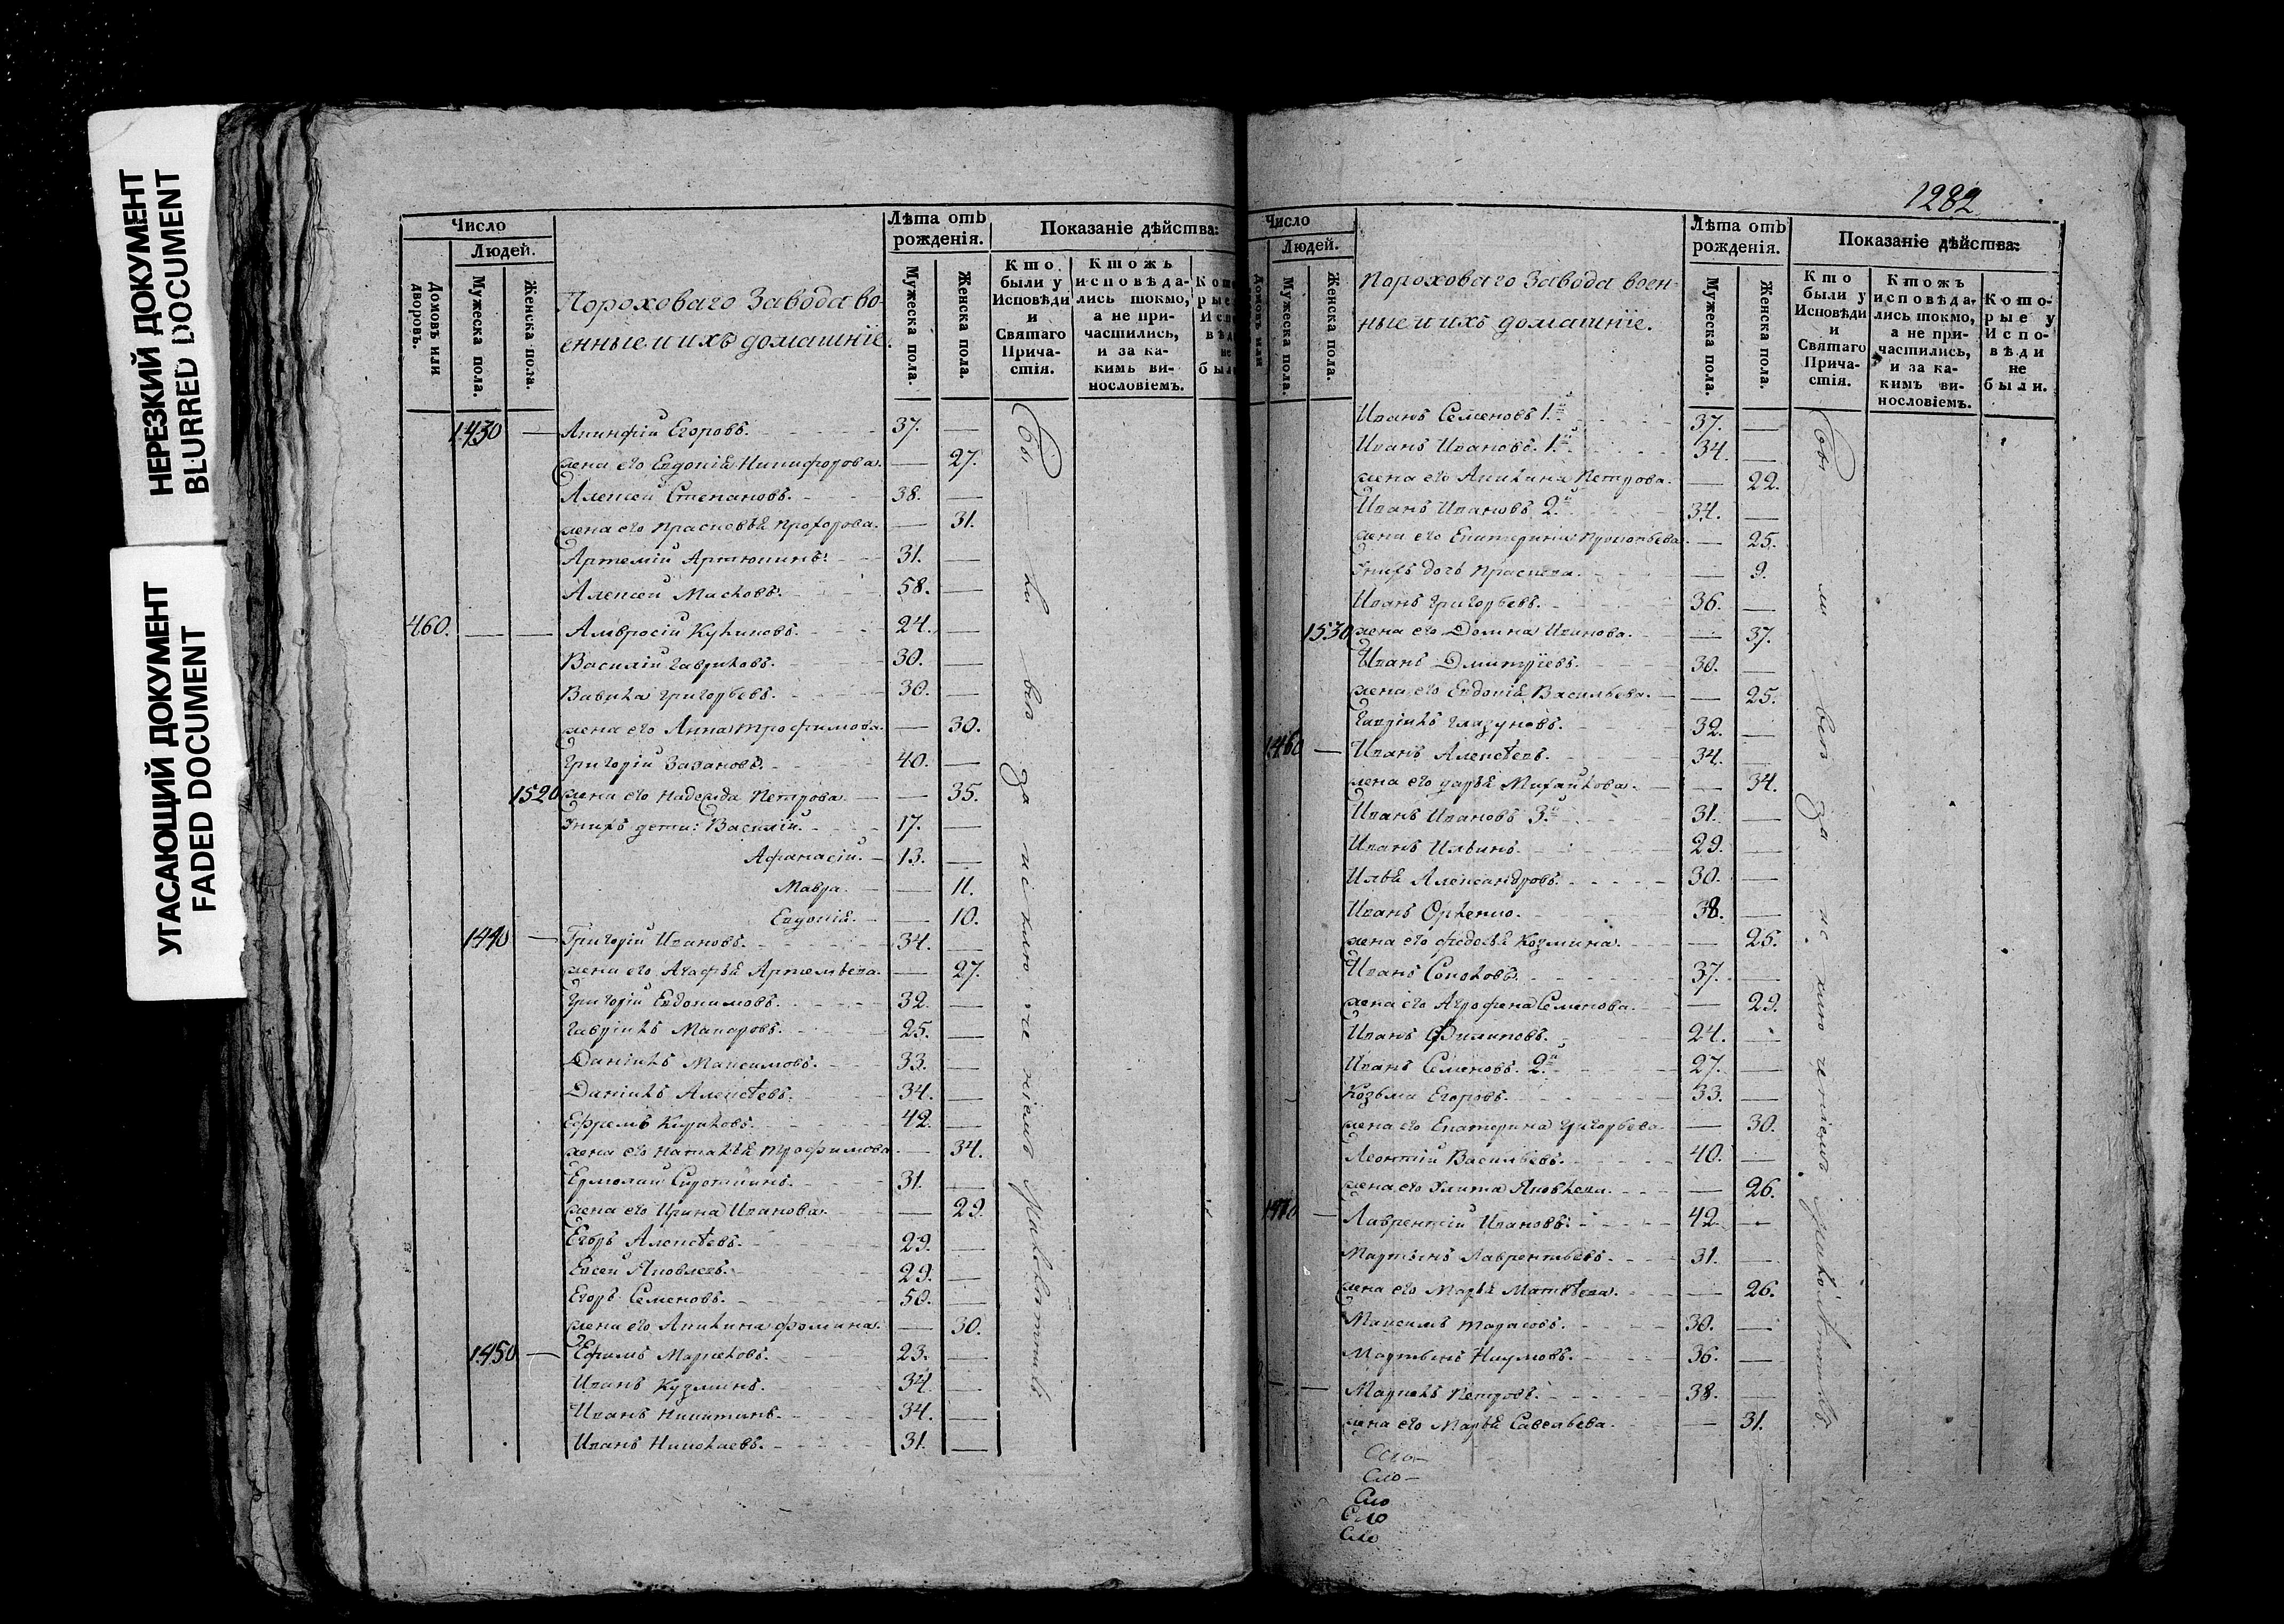 НЕРЕЗКИЙ ДОКУМЕНТ
BLURRED DOCUMENT
УГАСАЮЩИЙ ДОКУМЕНТ
FADED DOCUMENT
Число
Людей.
Домовъ или дворовъ.
Мужеска пола.
Женска пола.
Пороховаго Завода во-
енные и ихъ домашніе.
Лѣта отъ рожденія.
Мужеска пола.
Женска пола.
Показаніе дѣйства:
Кто были у Исповѣди и Святаго Прича-стія.
Ктожъ исповѣда-лись токмо, а не при-частились, и за ка-кимъ ви-нословіемъ.
1430 — Акинфій Егоровъ. 37. —
жена его Евдокія Никифорова. — 27.
Алексей Степановъ. 38. —
жена его Прасковья Прохорова. — 31.
Артемій Артюшинъ. 31. —
Алексей Масловъ. 58. —
460. — — Амвросій Куликовъ. 24. —
Василій Гавриловъ. 30. —
Вавила Григорьевъ. 30. —
жена его Анна Трофимова. — 30.
Григорій Казановъ. 40. —
1520 жена его Надежда Петрова. — 35.
У нихъ дети: Василій. 17. —
Афанасій. 13. —
Мавра. — 11.
Евдокія. — 10.
1440 — Григорій Ивановъ. 34. —
жена его Агафья Артемьева. — 27.
Григорій Евдокимовъ. 32. —
Гавріилъ Макаровъ. 25. —
Даніилъ Максимовъ. 33. —
Даніилъ Алексѣевъ. 34. —
Ефремъ Кириловъ. 42. —
жена его Наталья Трофимова — 34.
Ермолай Сиротинъ. 31. —
жена его Ирина Иванова. — 29.
Егоръ Алексѣевъ. 29. —
Евсей Яковлевъ. 29. —
Егоръ Семеновъ. 50. —
жена его Акилина Фомина. — 30.
1450 — Ефимъ Марковъ. 23. —
Иванъ Кузминъ. 34. —
Иванъ Никитинъ. 34. —
Иванъ Николаевъ. 31. —
Были все за исключеніемъ
1282
Число
Людей.
Мужеска пола.
Женска пола.
Пороховаго Завода воен-
ные и ихъ домашніе.
Лѣта отъ рожденія.
Мужеска пола.
Женска пола.
Показаніе дѣйства:
Кто были у Исповѣди и Святаго Прича-стія.
Ктожъ исповѣда-лись токмо, а не при-частились, и за ка-кимъ ви-нословіемъ.
Кото-рые у Испо-вѣди не были.
Иванъ Семеновъ 1й 37. —
Иванъ Ивановъ. 1й 34. —
жена его Акилина Петрова. — 22.
Иванъ Ивановъ 2й 34. —
жена его Екатерина Прокопьева — 25.
У нихъ дочь Прасковья. — 9.
Иванъ Григорьевъ. 36. —
1530 жена его Домна Иванова. — 37.
Иванъ Дмитріевъ. 30. —
жена его Евдокія Васильева. — 25.
Гавріилъ Глазуновъ. 32. —
1460 — Иванъ Алексѣевъ. 34. —
жена его Дарья Михайлова. — 34.
Иванъ Ивановъ 3й 31. —
Иванъ Ильинъ. 29. —
Илья Александровъ. 30. —
Иванъ Орленко. 38. —
жена его Федосья Козмина. — 25.
Иванъ Соколовъ. 37. —
жена его Агрофена Семенова. — 29.
Иванъ Филиповъ. 24. —
Иванъ Семеновъ. 2й 27. —
Козьма Егоровъ. 33. —
жена его Екатерина Григорьева. — 30.
Леонтій Васильевъ. 40. —
жена его Улита Яковлева. — 26.
1470 — Лаврентій Ивановъ. 42. —
Мартынъ Лаврентьевъ. 31. —
жена его Марья Матвѣева. — 26.
Максимъ Тарасовъ. 30. —
Мартынъ Наумовъ. 36. —
Маркелъ Петровъ. 38. —
жена его Марья Савельева. — 31.
Были все за исключеніемъ
Сло
Сло
Сло
Сло